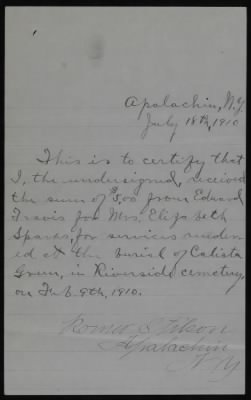 Apalachin, N.Y.
July 18th, 1910
This is to certify that
I, the undersigned, received
the sum of $5,00 from Edward
Travis for Mrs. Elizabeth
Sparks, for services render-
ed at the burial of Calista
Green, in Riverside cemetery,
on Feb. 9th, 1910.
Apalachin
N.Y.